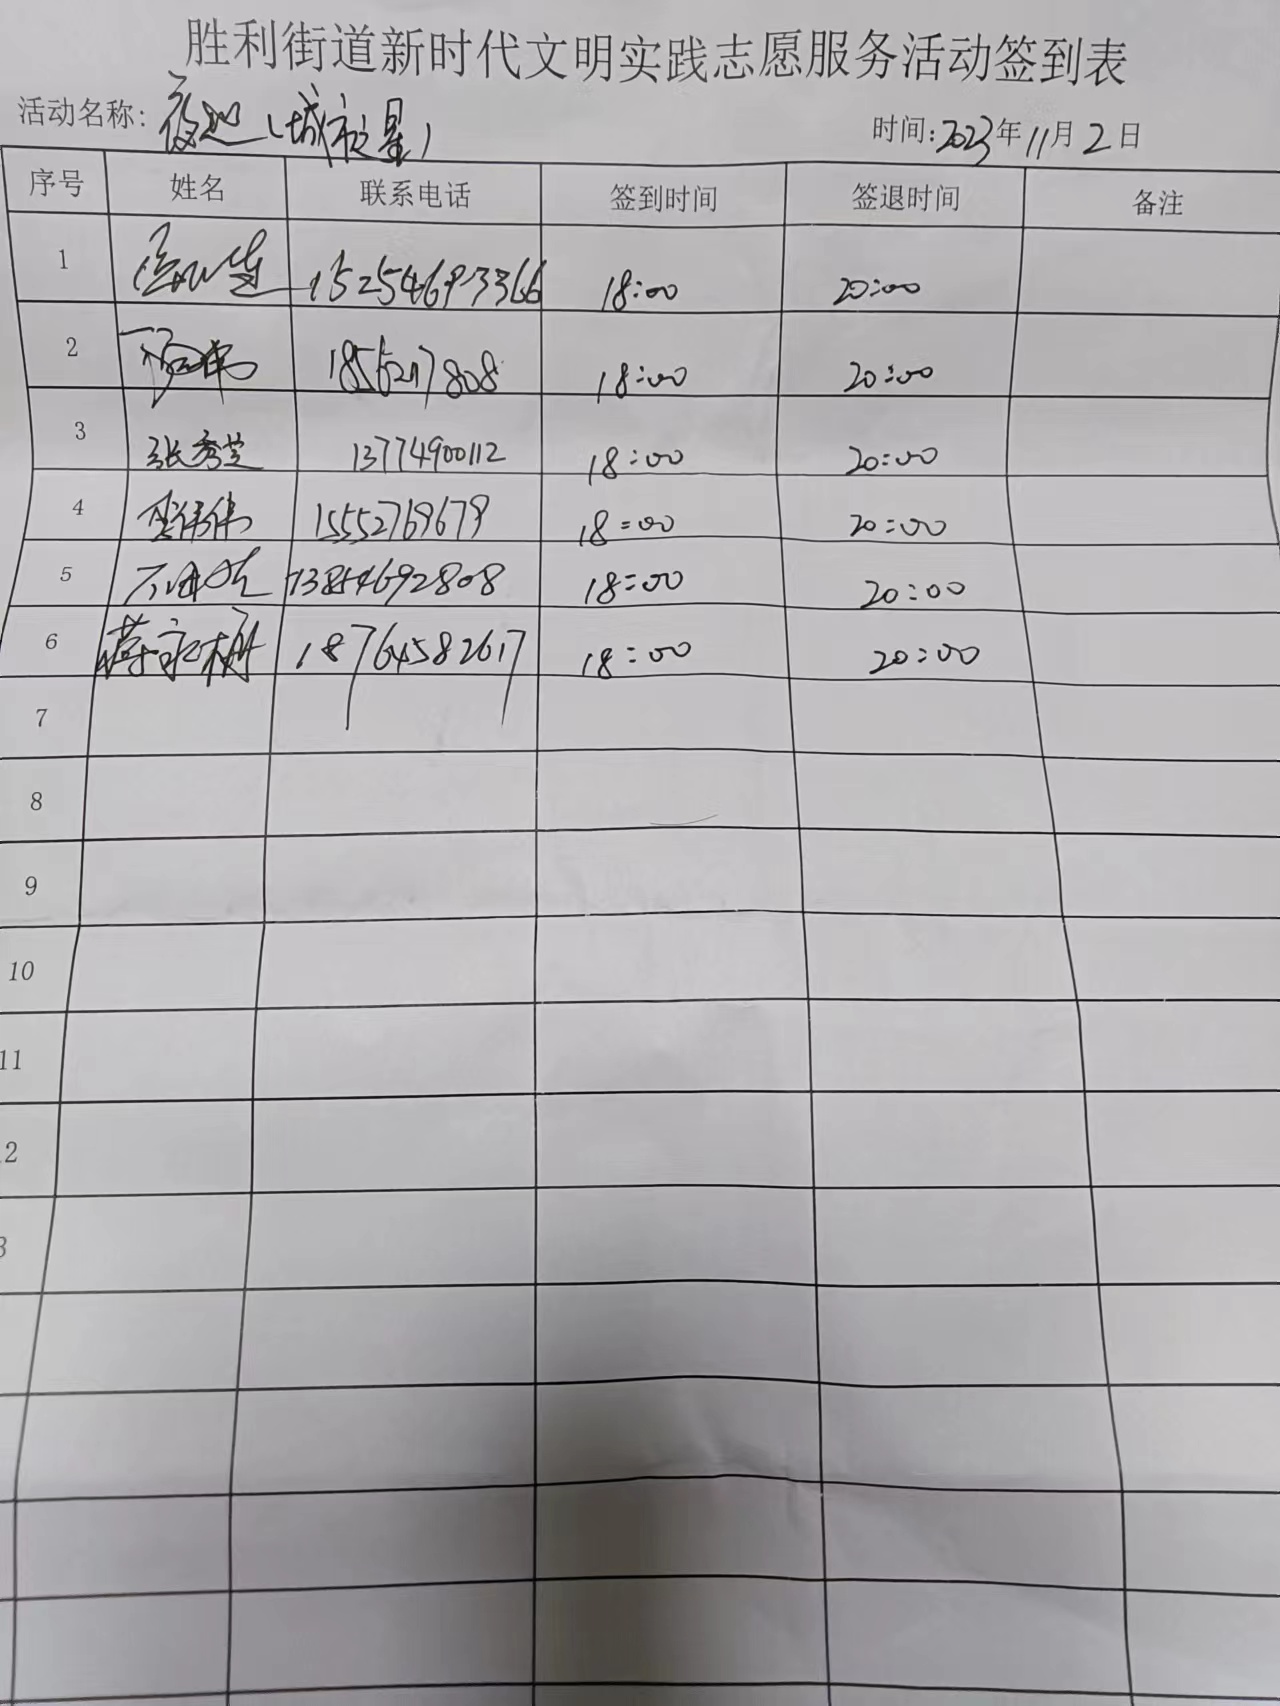 胜利街道新时代文明实践志愿服务活动签到表
活动名称：夜巡（城市之星）
时间：2023年11月2日
序号 姓名 联系电话 签到时间 签退时间 备注
1 15254693366 18:00 20:00
2 18:00 20:00
3 张秀芝 13774900112 18:00 20:00
4 伟伟 15552769679 18:00 20:00
5 13854692808 18:00 20:00
6 蒋永栅 18764582617 18:00 20:00
7
8
9
10
11
2
3